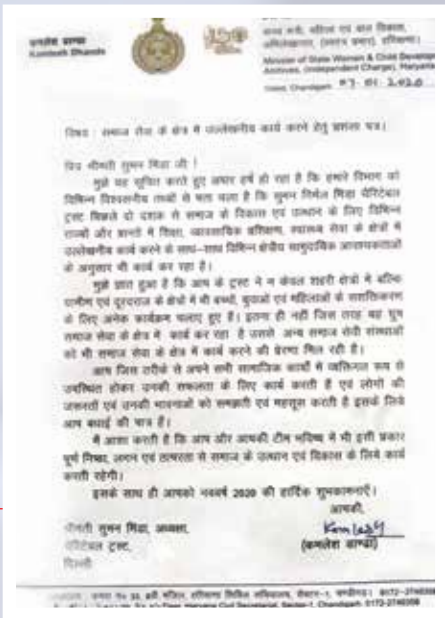 कमलेश ढाण्डा
Kamlesh Dhanda
राज्य मंत्री, महिला एवं बाल विकास,
अभिलेखागार, (स्वतंत्र प्रभार), हरियाणा।
Minister of State Women & Child Develop
Archives, (Independent Charge), Haryana
Dated, Chandigarh
विषय : समाज सेवा के क्षेत्र में उल्लेखनीय कार्य करने हेतु प्रशंसा पत्र।
प्रिय श्रीमती सुमन मिडा जी !
मुझे यह सूचित करते हुए अपार हर्ष हो रहा है कि हमारे विभाग को
विभिन्न विश्वसनीय तथ्यों से पता चला है कि सुमन निर्मल मिडा चेरिटेबल
ट्रस्ट पिछले दो दशक से समाज के विकास एवं उत्थान के लिए विभिन्न
राज्यों और प्रान्तों में शिक्षा, व्यावसायिक प्रशिक्षण, स्वास्थ्य सेवा के क्षेत्रों में
उल्लेखनीय कार्य करने के साथ-साथ विभिन्न क्षेत्रीय सामुदायिक आवश्यकताओं
के अनुसार भी कार्य कर रहा है।
मुझे ज्ञात हुआ है कि आप के ट्रस्ट ने न केवल शहरी क्षेत्रों में बल्कि
ग्रामीण एवं दूरदराज के क्षेत्रों में भी बच्चों, युवाओं एवं महिलाओं के सशक्तिकरण
के लिए अनेक कार्यक्रम चलाए हुए है। इतना ही नहीं जिस तरह यह ग्रुप
समाज सेवा के क्षेत्र में कार्य कर रहा है उससे अन्य समाज सेवी संस्थाओं
को भी समाज सेवा के क्षेत्र में कार्य करने की प्रेरणा मिल रही है।
आप जिस तरीके से अपने सभी सामाजिक कार्यों में व्यक्तिगत रूप से
उपस्थित होकर उनकी सफलता के लिए कार्य करती हैं एवं लोगों की
जरूरतों एवं उनकी भावनाओं को समझती एवं महसूस करती है इसके लिये
आप बधाई की पात्र हैं।
मैं आशा करती हूं कि आप और आपकी टीम भविष्य में भी इसी प्रकार
पूर्ण निष्ठा, लगन एवं तत्परता से समाज के उत्थान एवं विकास के लिये कार्य
करती रहेगी।
इसके साथ ही आपको नववर्ष 2020 की हार्दिक शुभकामनाएँ।
आपकी,
श्रीमती सुमन मिडा, अध्यक्षा,
चेरिटेबल ट्रस्ट,
दिल्ली
(कमलेश ढाण्डा)
हरियाणा सिविल सचिवालय, सैक्टर-1, चण्डीगढ़।
Haryana Civil Secretariat, Sector-1, Chandigarh